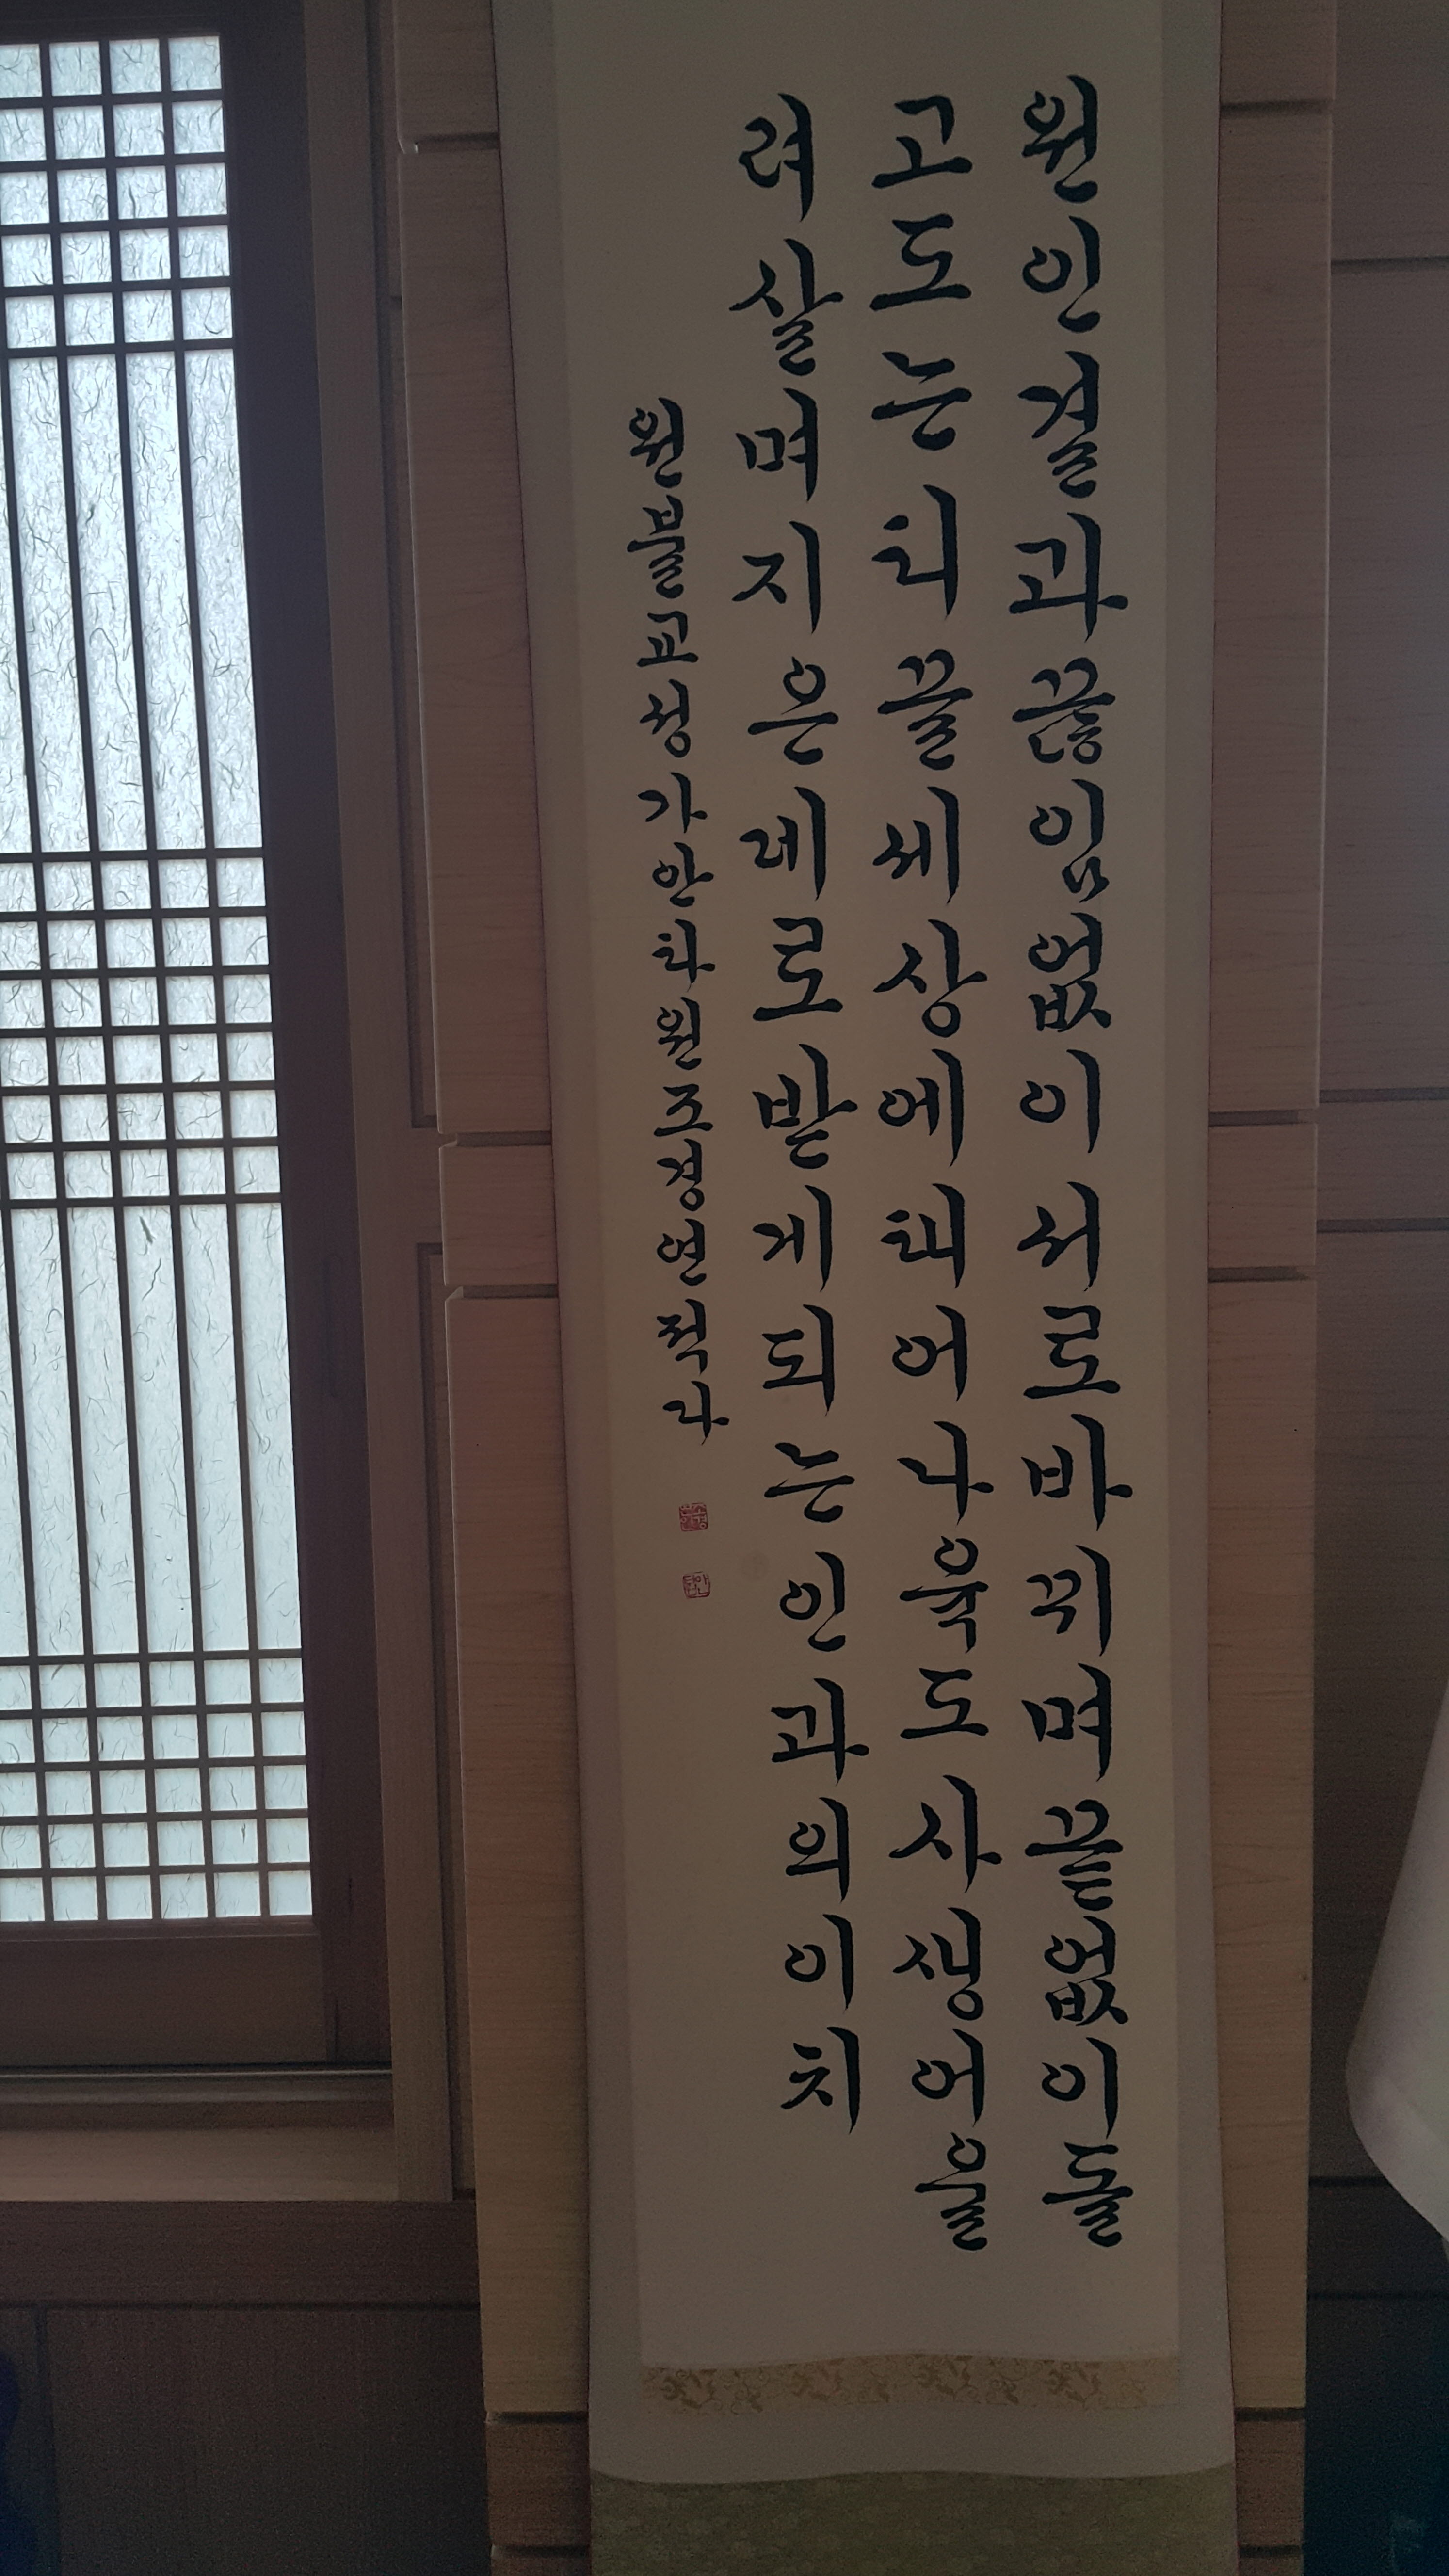 원인결과끊임없이서로바뀌며끝없이돌
고도는티끌세상에태어나육도사생어울
려살며지은데로받게되는인과의이치
원불교성가안타원조경연적다